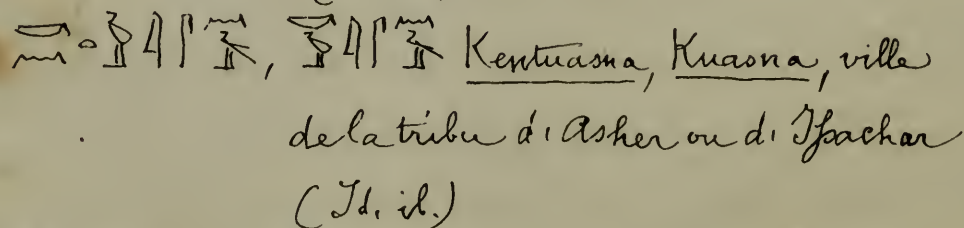 , Kentuasna, Kuasna, ville
de la tribu d'Asher ou d'Issachar
(Id. ib.)